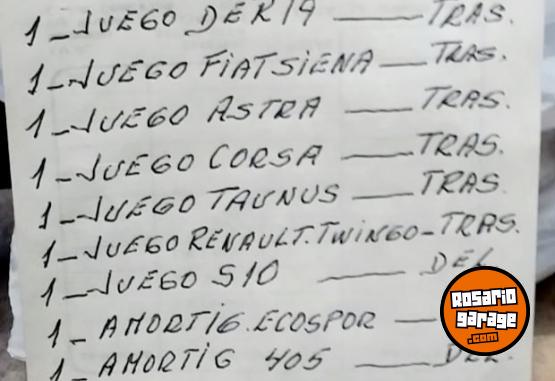 1_JUEGO R19 ___ TRAS.
1_JUEGO FIAT SIENA ___ TRAS.
1_JUEGO ASTRA ___ TRAS.
1_JUEGO CORSA ___ TRAS.
1_JUEGO TAUNUS ___ TRAS.
1_JUEGO RENAULT.TWINGO_TRAS.
1_JUEGO S10 ___ DEL
1_AMORTIG.ECOSPOR ___
1_AMORTIG 405 ___ DEL.
Rosario
garage
.com